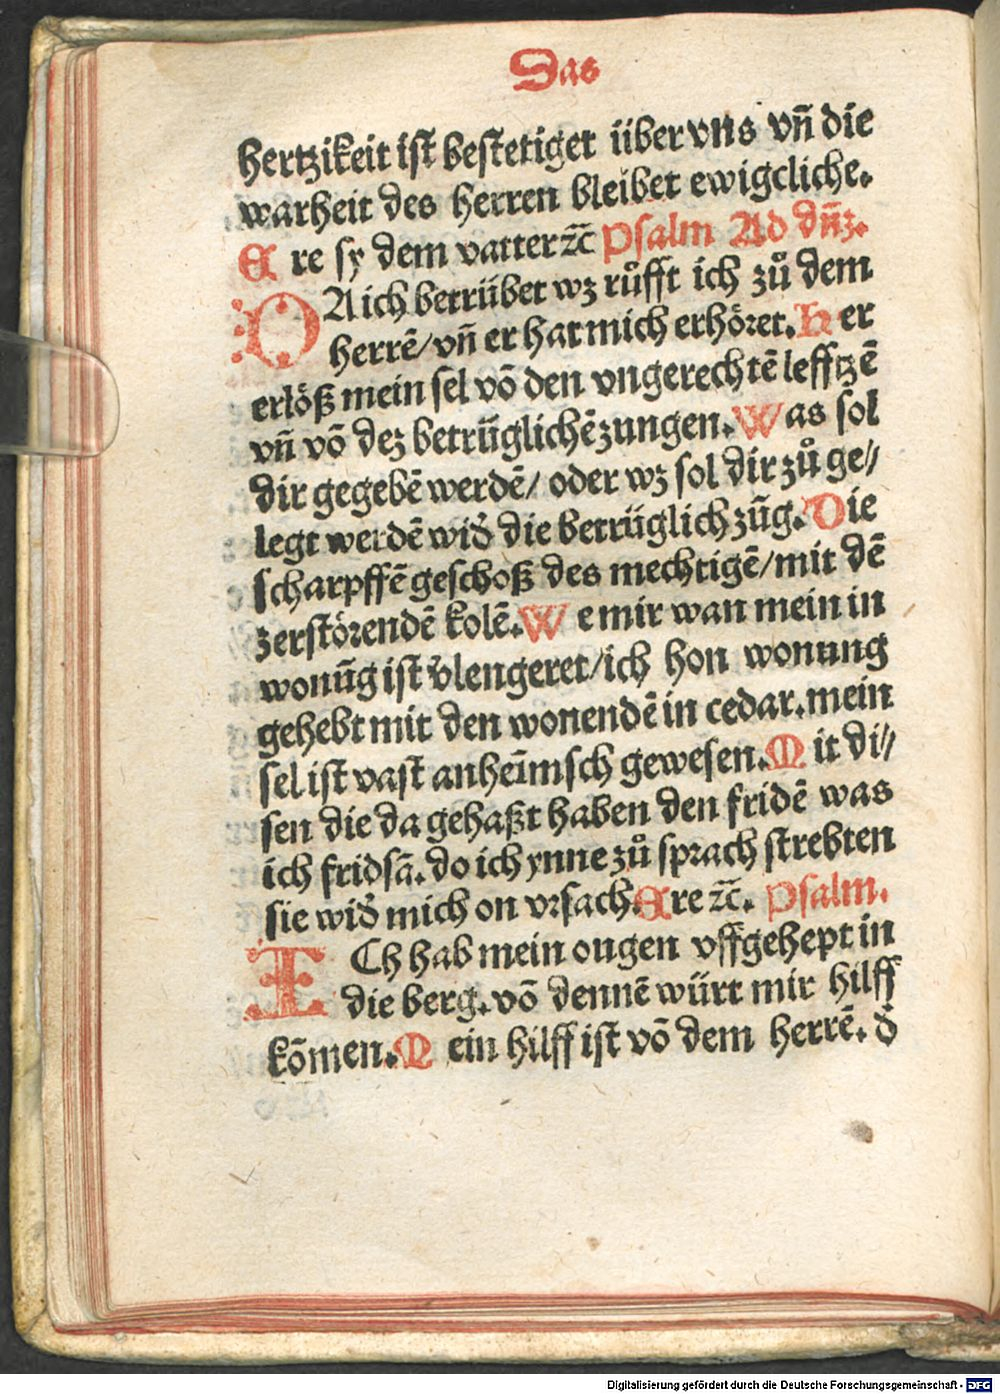 Das
hertzikeit ist bestetiget über vns vn̄ die
warheit des herren bleibet ewigcliche.
Ere sy dem vatter ⁊c̄ Psalm Ad dn̄ꝫ.
DA ich betrübet wꝫ růfft ich zů dem
herrē/ vn̄ er hat mich erhöꝛet. Her
erlöß mein sel vō den vngerechtē lefftzē
vn̄ vō deꝫ betrüglichē zungen. Was sol
dir gegebē werdē/ oder wꝫ sol dir zů ge⸗
legt werdē wid̛ die betrüglich zūg. Die
scharpffē geschoß des mechtigē/ mit dē
zerstöꝛendē kolē. We mir wan mein in
wonūg ist v̛lengeret/ ich hon wonung
gehebt mit den wonendē in cedar. mein
sel ist vast anheīmsch gewesen. Mit di⸗
sen die da gehaßt haben den fridē was
ich fridsā. do ich ynne zů spꝛach strebten
sie wid̛ mich on vꝛsach. Ere ⁊c̄. Psalm.
ICh hab mein ougen vffgehept in
die berg. vō dennē würt mir hilff
kōmen. Mein hilff ist vō dem herrē. d̛
Digitalisierung gefördert durch die Deutsche Forschungsgemeinschaft - DFG